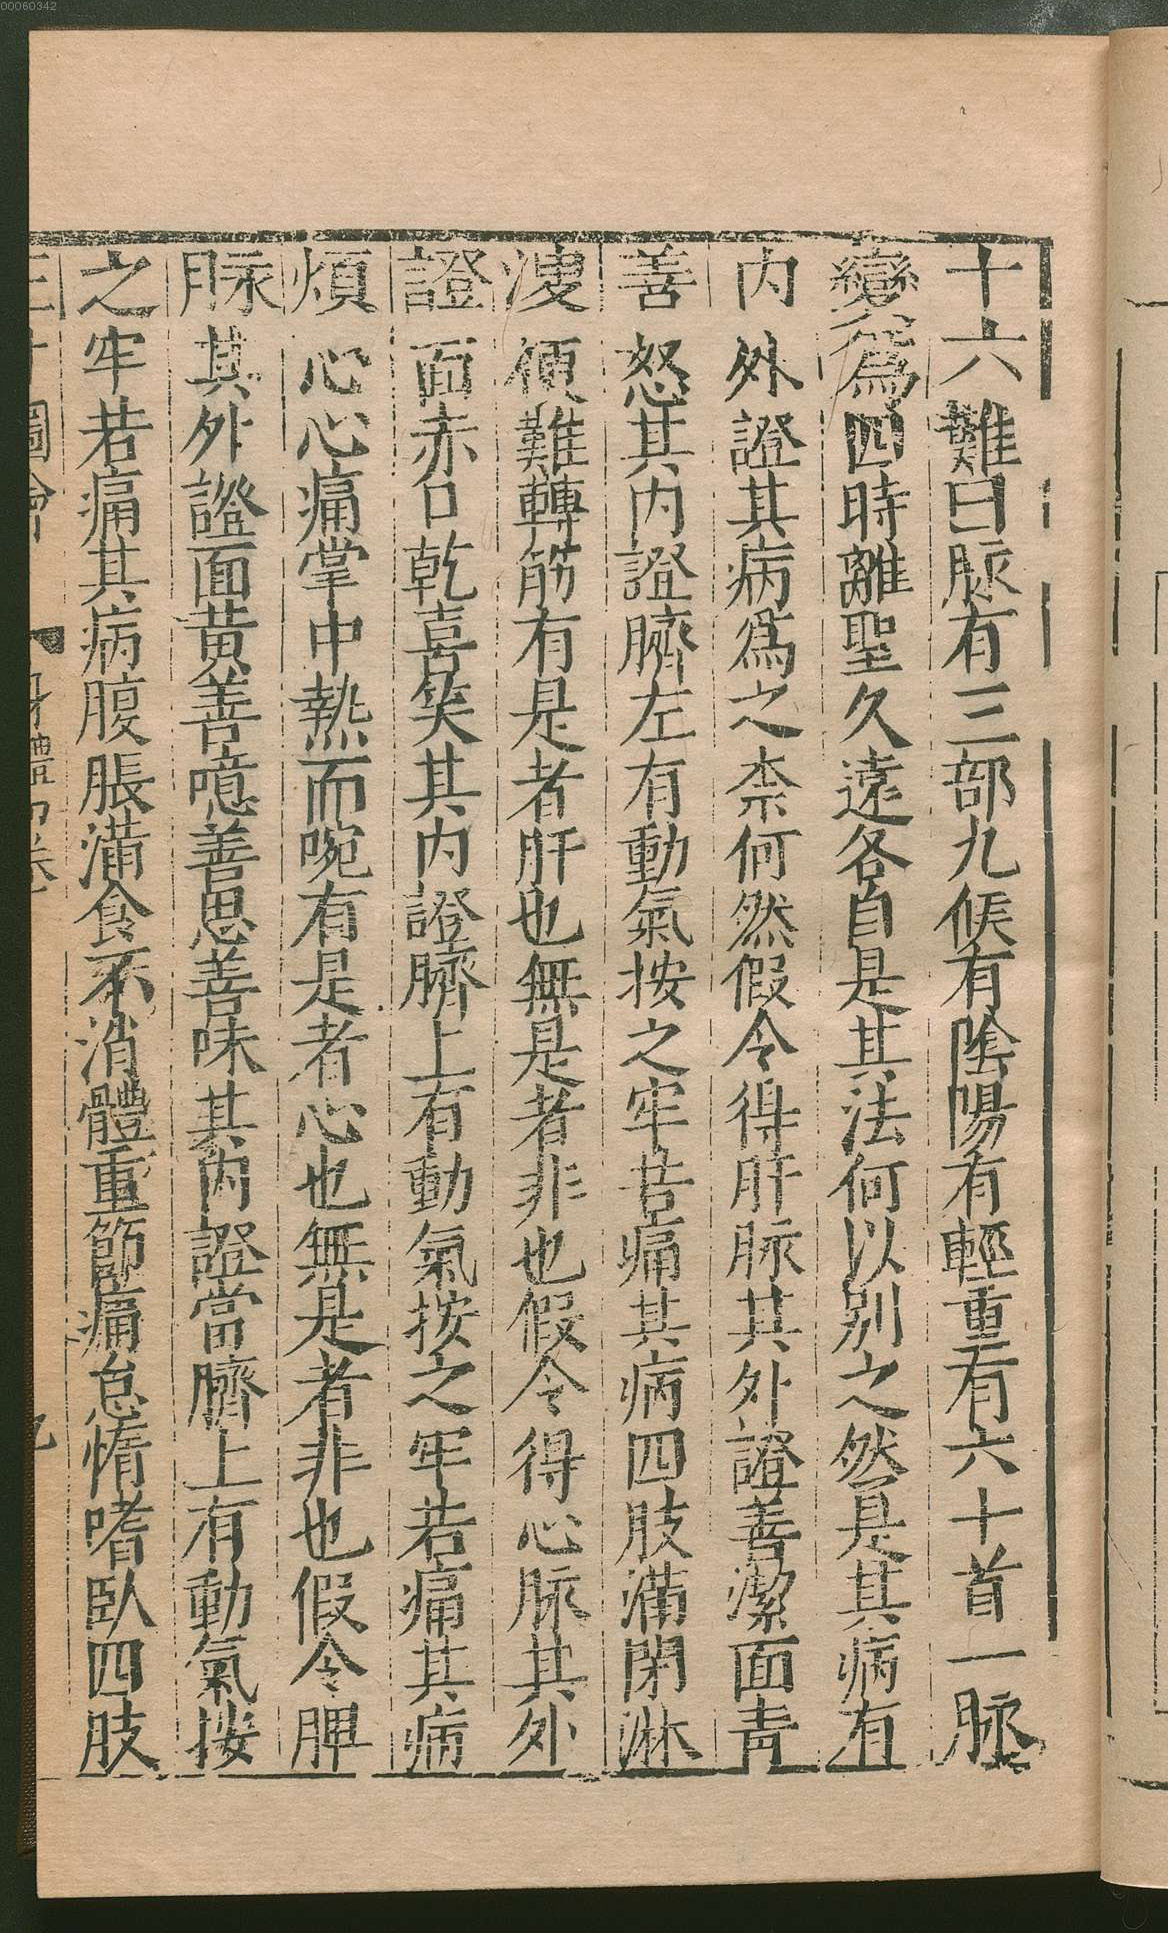 00060342
十六難曰脈有三部九候有陰陽有輕重有六十首一脈
變爲四時離聖久遠各自是其法何以别之然是其病有
内外證其病爲之柰何然假令得肝脈其外證善潔面青
善怒其内證臍左有動氣按之牢苦痛其病四肢滿閉淋
溲便難轉筋有是者肝也無是者非也假令得心脈其外
證面赤口乾喜笑其内證臍上有動氣按之牢若痛其病
煩心心痛掌中熱而啘有是者心也無是者非也假令脾
脉其外證面黄善噫善思善味其内證當臍上有動氣按
之牢若痛其病腹脹滿食不消體重節痛怠惰嗜臥四肢
三才圖會 身體四卷 九